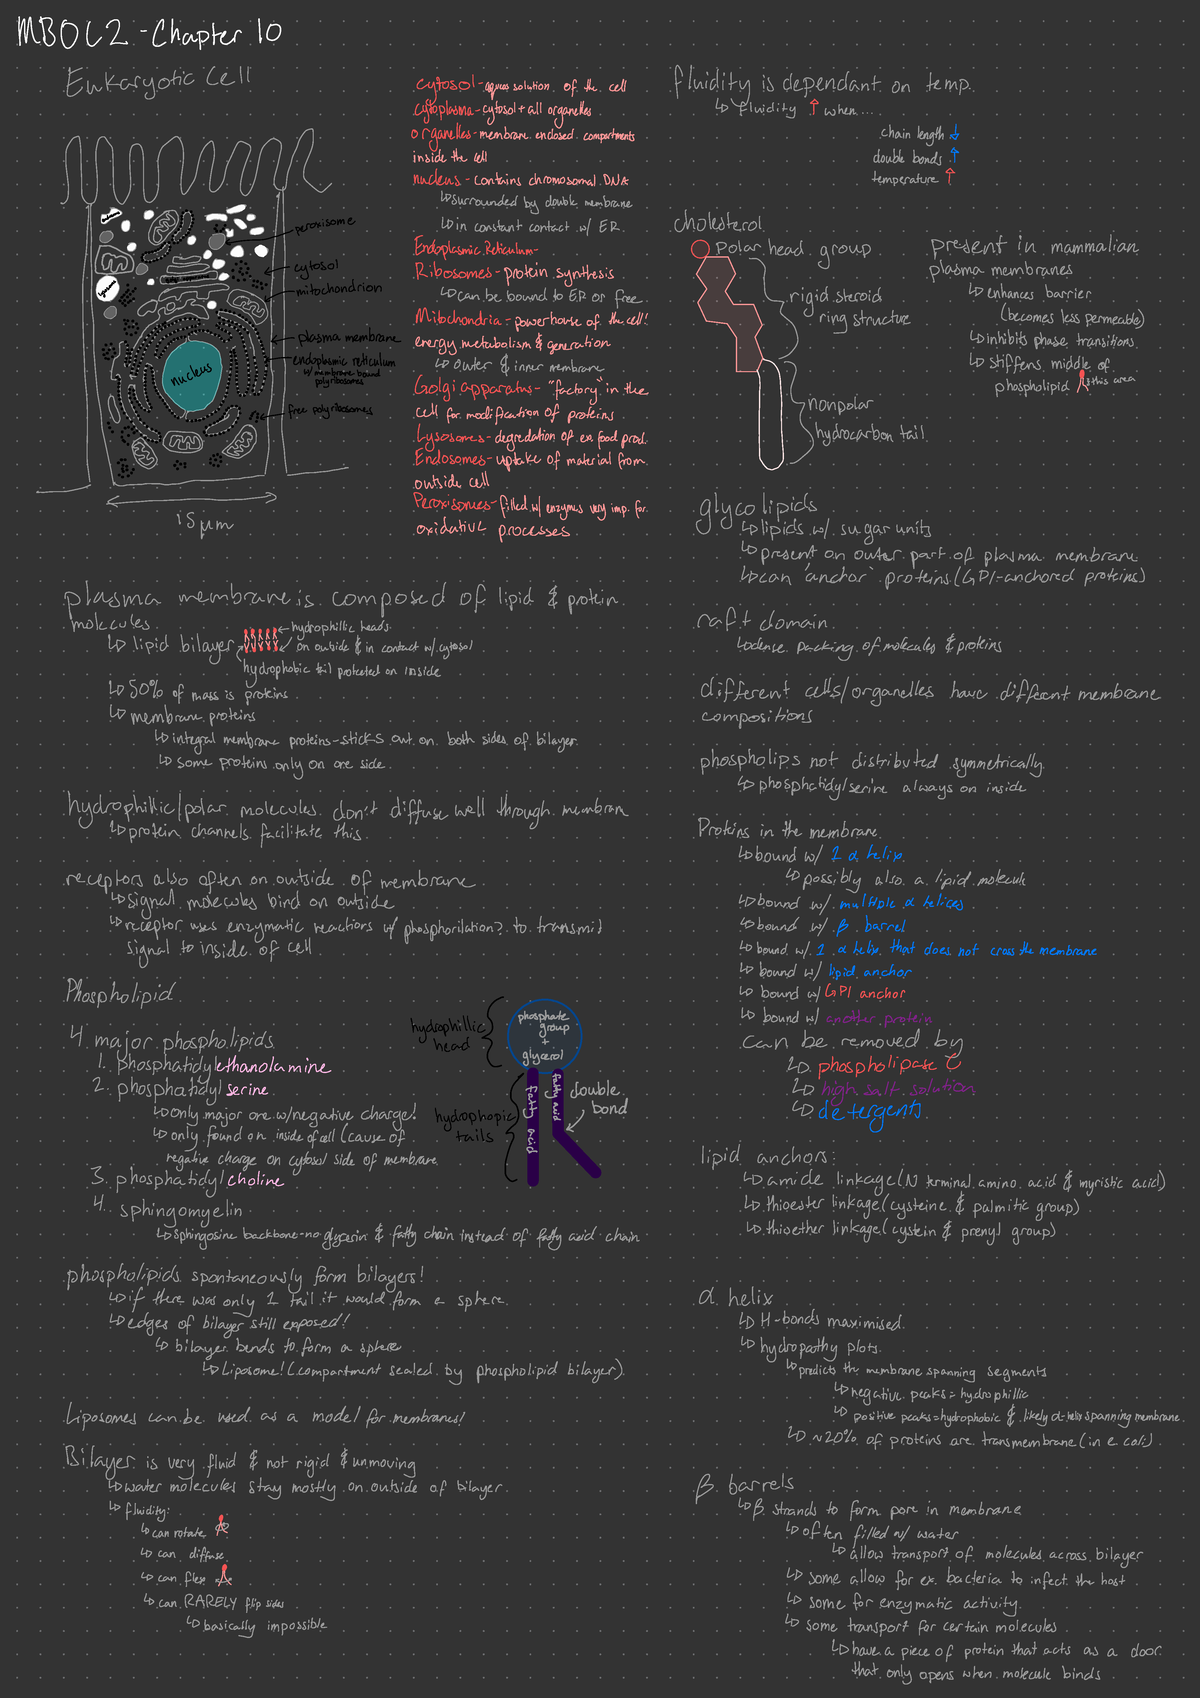 MBOC2 - Chapter 10
Eukaryotic Cell
peroxisome
cytosol
mitochondrion
plasma membrane
endoplasmic reticulum
w/ membrane bound
polyribosomes
nucleus
free polyribosomes
15 μm
cytosol - aqueous solution of the cell
cytoplasma - cytosol + all organelles
organelles - membrane enclosed compartments
inside the cell
nucleus - contains chromosomal DNA
↳ surrounded by double membrane
↳ in constant contact w/ ER
Endoplasmic Reticulum -
Ribosomes - protein synthesis
↳ can be bound to ER or free
Mitchondria - powerhouse of the cell!
energy metabolism & generation
↳ outer & inner membrane
Golgi apparatus - "factory" in the
cell for modification of proteins
Lysosomes - degredation of ex food prod.
Endosomes - uptake of material from
outside cell
Peroxisomes - filled w/ enzymes very imp. for
oxidative processes
plasma membrane is composed of lipid & protein
molecules
↳ lipid bilayer
hydrophillic heads
on outside & in contact w/ cytosol
hydrophobic tail protected on inside
↳ 50% of mass is proteins
↳ membrane proteins
↳ integral membrane proteins - sticks out on both sides of bilayer
↳ some proteins only on one side
hydrophillic/polar molecules don't diffuse well through membran
↳ protein channels facilitate this
receptors also often on outside of membrane
↳ signal molecules bind on outside
↳ receptor uses enzymatic reactions w/ phosphorilation? to transmit
signal to inside of cell
Phospholipid
4 major phospholipids
1. phosphatidylethanolamine
2. phosphatidyl serine
↳ only major one w/ negative charge!
↳ only found on inside of cell (cause of
negative charge on cytosol side of membrane
3. phosphatidyl choline
4. sphingomyelin
↳ sphingosine backbone - no glycerin & fatty chain instead of fatty acid chain
hydrophillic
head
phosphate
group
+
glycerol
hydrophopic
tails
fatty acid
fatty acid
double
bond
phospholipids spontaneously form bilayers!
↳ if there was only 1 tail it would form a sphere
↳ edges of bilayer still exposed!
↳ bilayer bends to form a sphere
↳ Liposome! (compartment sealed by phospholipid bilayer)
Liposomes can be used as a model for membranes!
Bilayer is very fluid & not rigid & unmoving
↳ water molecules stay mostly on outside of bilayer
↳ fluidity:
↳ can rotate
↳ can diffuse
↳ can flex
↳ can RARELY flip sides
↳ basically impossible
fluidity is dependant on temp.
↳ fluidity ↑ when...
chain length ↓
double bonds ↑
temperature ↑
cholesterol
Polar head group
rigid steroid
ring structure
nonpolar
hydrocarbon tail
present in mammalian
plasma membranes
↳ enhances barrier
(becomes less permeable)
↳ inhibits phase transitions
↳ stiffens middle of
phospholipid
this area
glycolipids
↳ lipids w/ sugar units
↳ present on outer part of plasma membrane
↳ can 'anchor' proteins (GPI-anchored proteins)
raft domain
↳ dense packing of molecules & proteins
different cells/organelles have different membrane
compositions
phospholips not distributed symmetrically
↳ phosphatidylserine always on inside
Proteins in the membrane
↳ bound w/ 1 α helix
↳ possibly also a lipid molecule
↳ bound w/ multiple α helices
↳ bound w/ β barrel
↳ bound w/ 1 α helix that does not cross the membrane
↳ bound w/ lipid anchor
↳ bound w/ GPI anchor
↳ bound w/ another protein
can be removed by
↳ phospholipase C
↳ high salt solution
↳ detergents
lipid anchors:
↳ amide linkage (N terminal amino acid & myristic acid)
↳ thioester linkage (cysteine & palmitic group)
↳ thioether linkage (cystein & prenyl group)
α helix
↳ H-bonds maximised
↳ hydropathy plots
↳ predicts the membrane spanning segments
↳ negative peaks = hydrophillic
↳ positive peaks = hydrophobic & likely α-helix spanning membrane
↳ ~20% of proteins are transmembrane (in e coli)
β barrels
↳ β strands to form pore in membrane
↳ often filled w/ water
↳ allow transport of molecules across bilayer
↳ some allow for ex. bacteria to infect the host
↳ some for enzymatic activity
↳ some transport for certain molecules
↳ have a piece of protein that acts as a door
that only opens when molecule binds